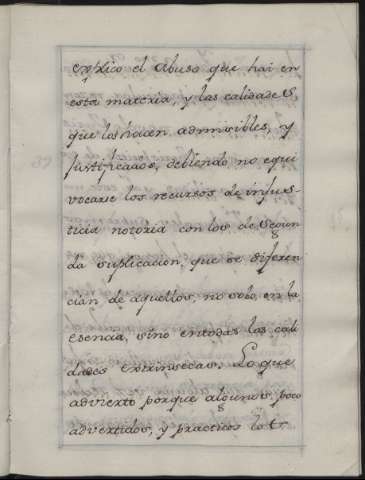 explico el Abuso que hai en
esta materia, y las calidades,
que los hacen admisibles, y
justificados, debiendo no equi
vocarse los recursos de injus-
ticia notoria con los de Segun
da suplicacion, que se diferen
cian de aquellos, no solo en la
esencia, sino en todas las cali
dades extrinsecas. Lo que
advierto porque algunos, poco
advertidos, y practicos los